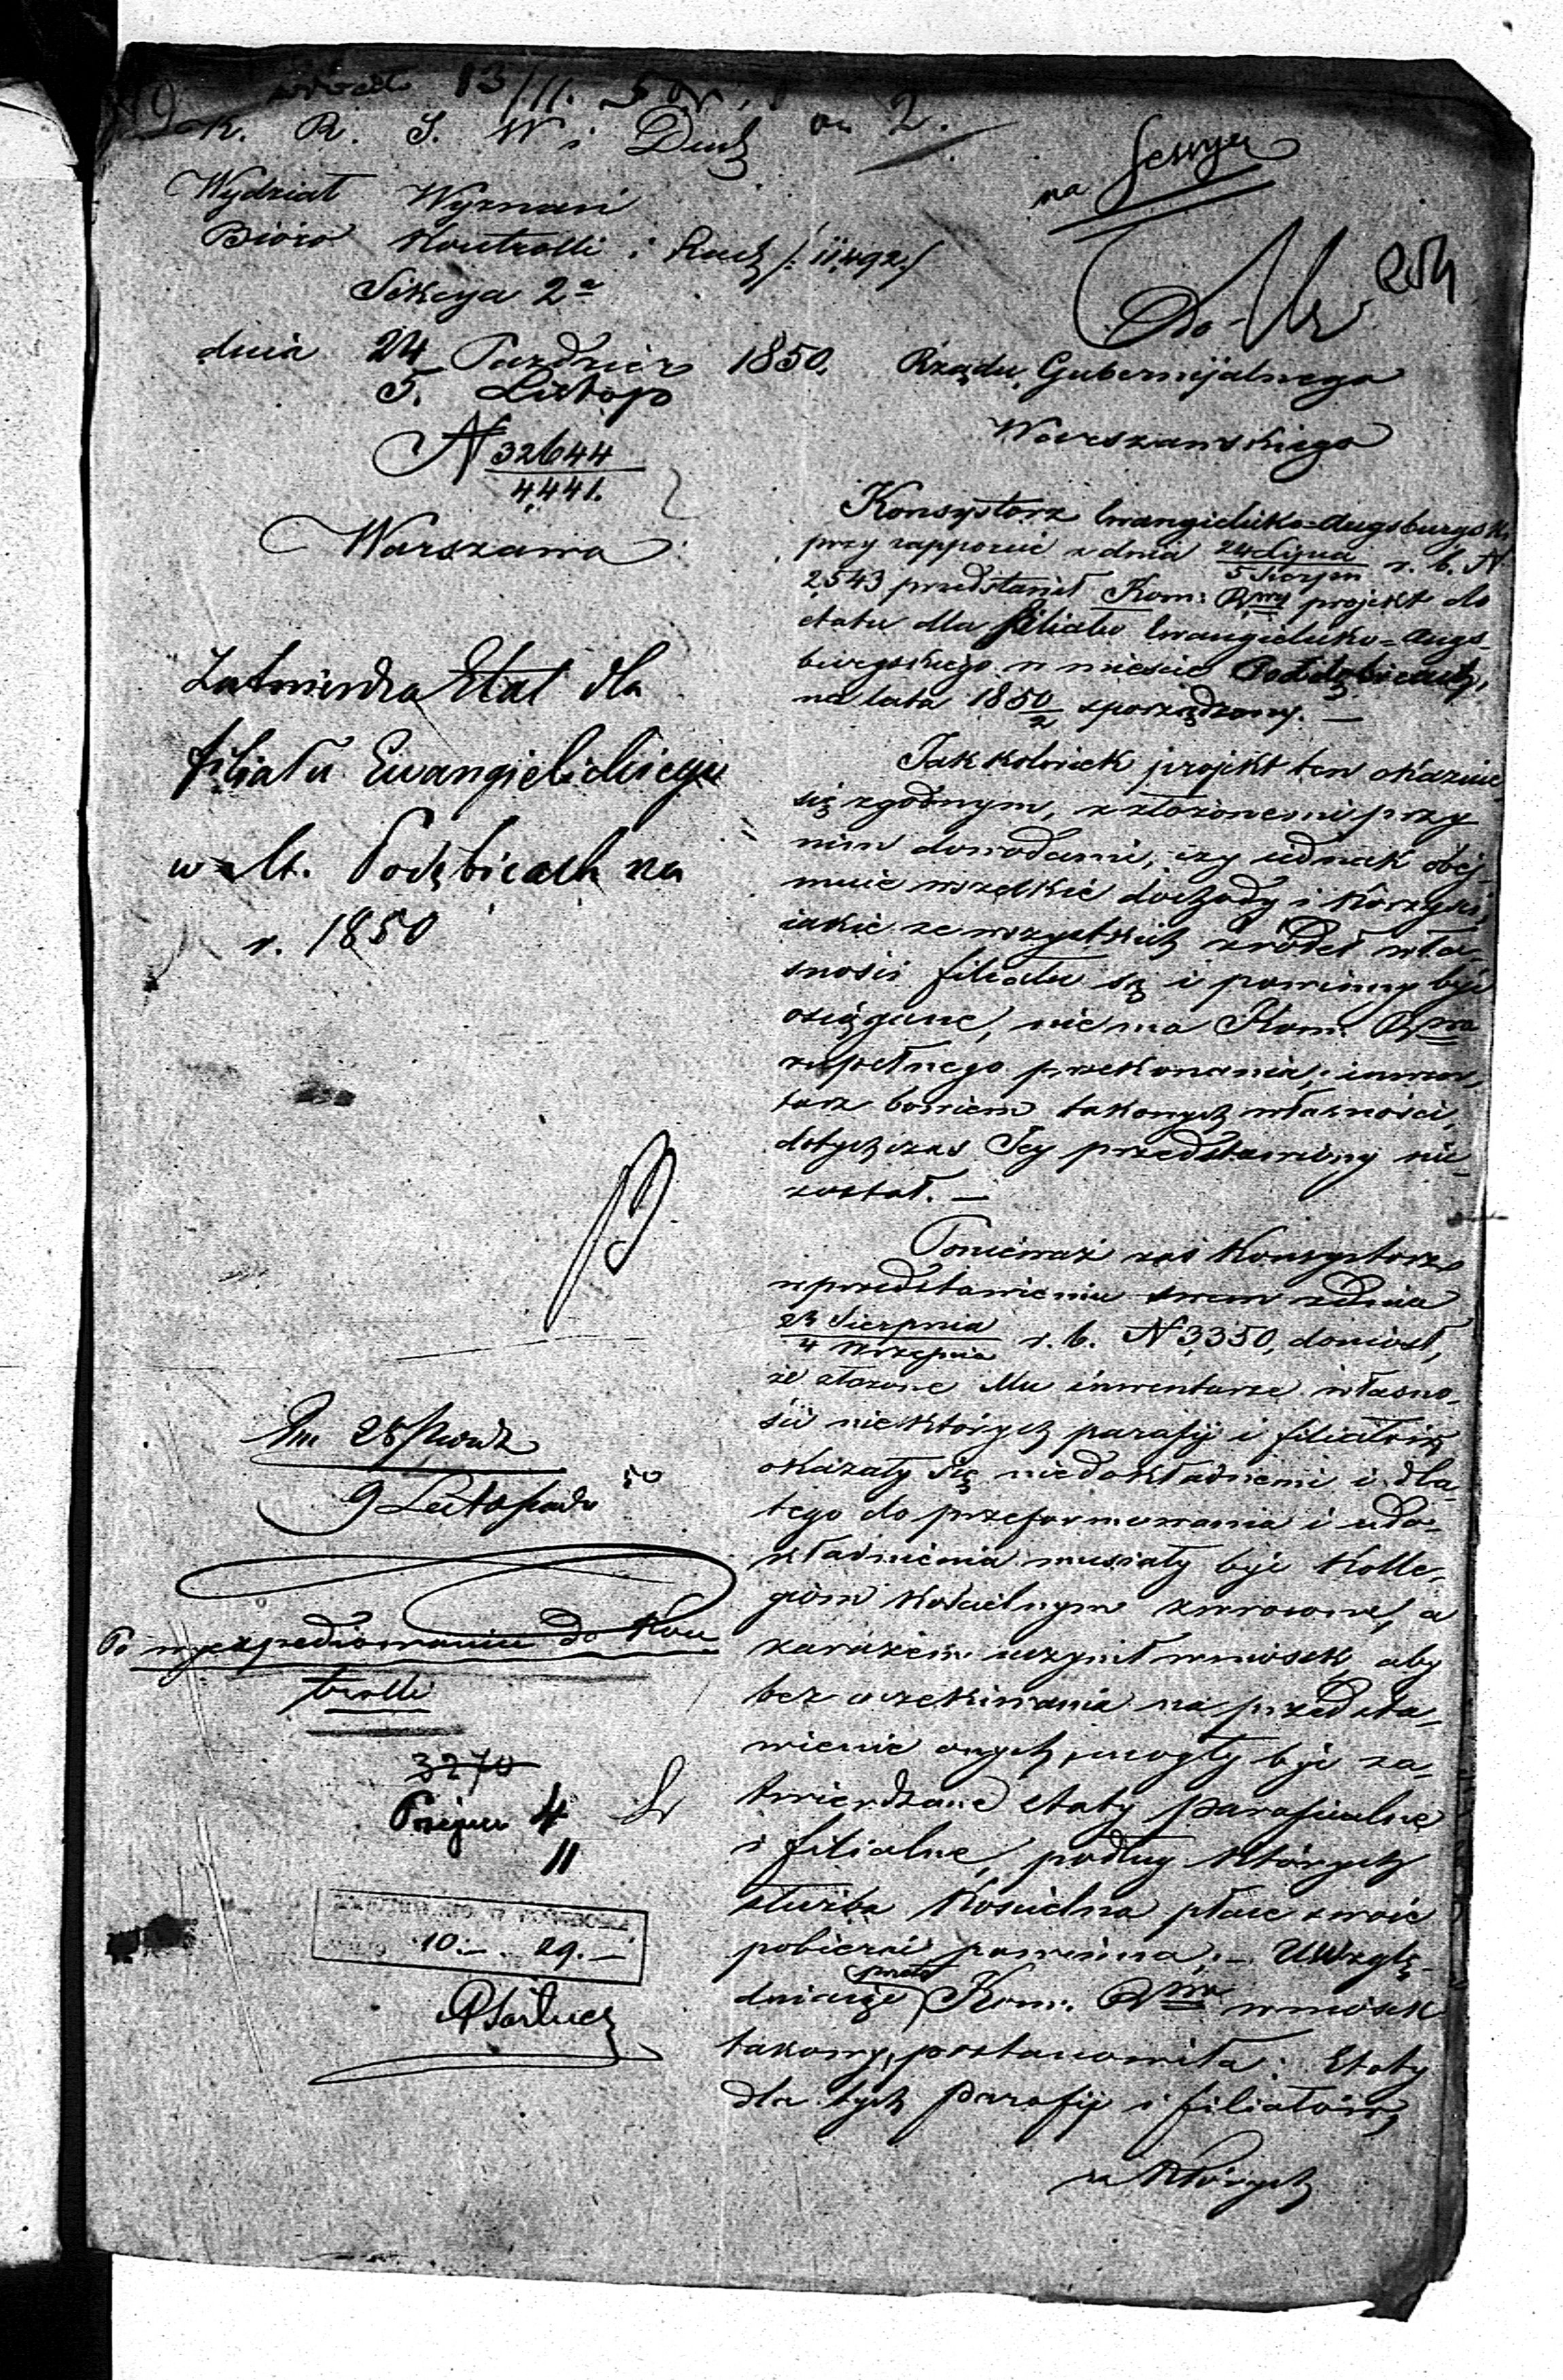 13/11.
K. R. S. W i Duch
Wydział Wyznań
Bióro Kontrolli i Rach
Sekcya 2a
dnia 24 Paździer 1850.
5. Listop
N 32644
4,441.
Warszawa
Zatwierdza Etat dla
filiału Ewangielickiego
w M. Poddębicach na
r. 1850
28 Paźdz
9 Listopada 50
Po wyexpediowaniu do Kon
trolli
3270
4
11
10.- 29.-
na Sessyą
254
Do
Rządu Gubernijalnego
Warszawskiego
Konsystorz Ewangielicko-Augsburgski
przy rapporcie z dnia 24 Lipca / 5 Sierpn r. b. N
2,543 przedstawił Kom: Rwy projekt do
etatu dla filiału Ewangielicko-Augs-
burgskiego w mieście Poddębicach,
na lata 1850/2 sporządzony. —
Jakkolwiek projekt ten okazuie
się zgodnym, z złożonemi przy
nim dowodami, czy iednak obej-
muie wszelkie dochody i korzyści,
iakie ze wszystkich źródeł wła-
sności filiału są i powinny być
osiągane, nie ma Kom: Rwa
zupełnego przekonania; inwen-
tarz bowiem takowych własności,
dotychczas Jey przedstawiony nie
został. —
Ponieważ zaś Konsystorz
w przedstawieniu swem z dnia
23 Sierpnia / 4 Września r. b. N 3,350, doniósł,
że złożone Mu inwentarze własno-
ści niektórych parafij i filiałów
okazały się niedokładnemi i dla
tego do przeformowania i udo-
kładnienia musiały być Kolle-
giom Kościelnym zwrócone, a
zarazem uczynił wniosek, aby
bez oczekiwania na przedsta-
wienie onych, mogły być za-
twierdzane etaty parafialne
i filialne, podług których
służba Kościelna płace swoie
pobierać powinna; — Uwzglę-
dniaiąc przeto Kom: Rwa wniosek
takowy, postanowiła: Etaty
dla tych parafij i filiałów,
z których